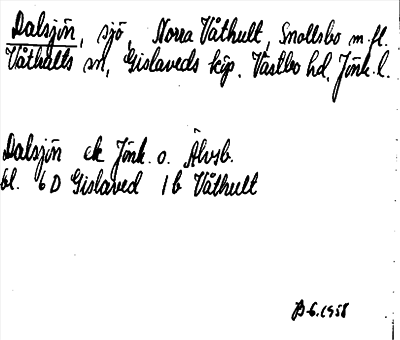 Dalsjön, sjö, Norra Våthult, Snallsbo m.fl.
Våthults sn, Gislaveds köp. Västbo hd, Jönk. l.
Dalsjön ek Jönk. o. Älvsb.
bl. 6 D Gislaved 1 b Våthult
6.1958